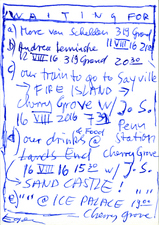 WAITING FOR
a) Marc van Schelden 319 Grand
11 VIII 16 21
b) Andrea Lemische
12 VIII 16 319 Grand 2030
c) our train to go to Sayville
→ FIRE ISLAND →
Cherry Grove W/ J. S.
16 VIII 2016 739 Penn Station
d) our drinks & Food @
Lands End Cherry Grove
16 VIII 16 1530 W/ J. S.
→ SAND CASTLE!
e) "" @ ICE PALACE 1900
Cherry Grove